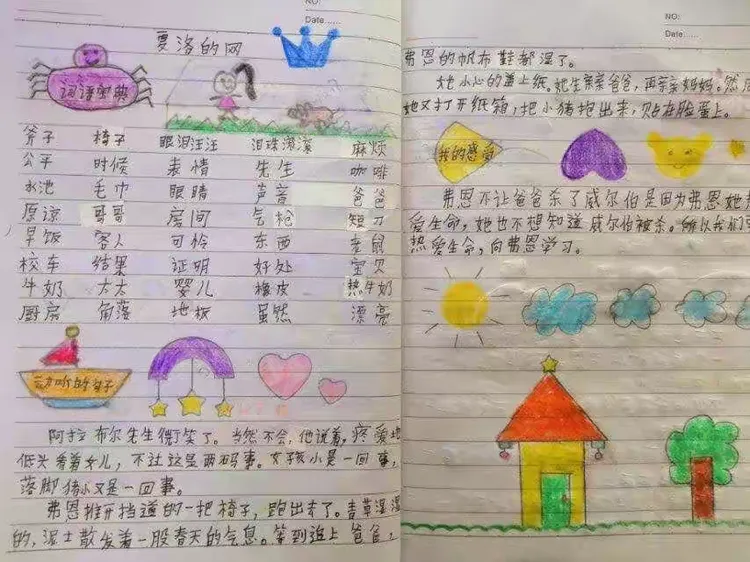 NO:
Date......
夏洛的网
词语宝典
斧子 椅子 眼泪汪汪 泪珠滚滚 麻烦
公平 时候 表情 先生 咖啡
水池 毛巾 眼睛 声音 爸爸
原谅 哥哥 房间 气枪 短刀
早饭 客人 可怜 东西 老鼠
校车 结果 证明 好处 宝贝
牛奶 太太 婴儿 橡皮 热牛奶
厨房 角落 地板 虽然 漂亮
动听的句子
阿拉布尔先生微笑了。当然不会,他说着,疼爱地
低头看着女儿,不过这是两码事。女孩小是一回事,
落脚猪小又是一回事。
弗恩推开挡道的一把椅子,跑出去了。青草湿湿
的,泥土散发着一股春天的气息。等到追上爸爸,
NO:
Date......
弗恩的帆布鞋都湿了。
她小心的盖上纸,她先亲亲爸爸,再亲亲妈妈。然后
她又打开纸箱,把小猪抱出来,贴在脸蛋上。
我的感受
弗恩不让爸爸杀了威尔伯是因为弗恩她
爱生命,她也不想知道威尔伯被杀。所以我们
热爱生命,向弗恩学习。